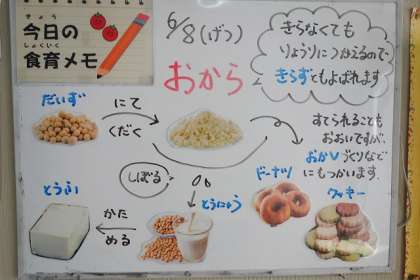 きょう
今日の
しょくいく
食育メモ
6/8(げつ)
おから
きらなくても
りょうりにつかえるので、
きらずともよばれます
だいず
にて
くだく
すてられることも
おおいですが、
おかしづくりなど
にもつかいます。
しぼる
とうにゅう
ドーナツ
クッキー
とうふ
かた
める